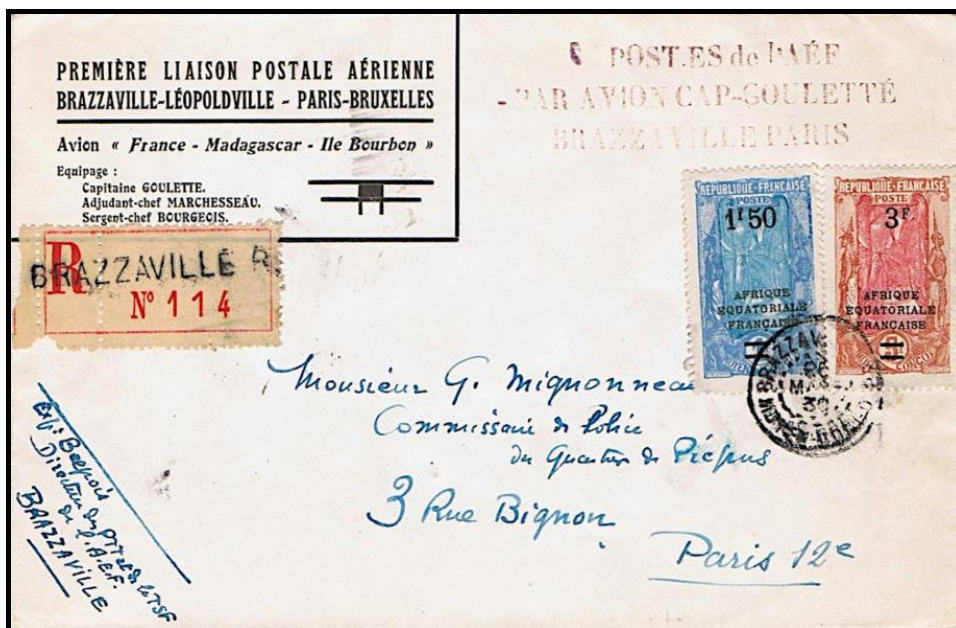 PREMIÈRE LIAISON POSTALE AÉRIENNE
BRAZZAVILLE-LÉOPOLDVILLE - PARIS-BRUXELLES
Avion « France - Madagascar - Ile Bourbon »
Equipage :
Capitaine GOULETTE.
Adjudant-chef MARCHESSEAU.
Sergent-chef BOURGEOIS.
POSTES de l'AÉF
-PAR AVION CAP-GOULETTE
BRAZZAVILLE PARIS
REPUBLIQUE-FRANÇAISE
POSTE
1F50
AFRIQUE
EQUATORIALE
FRANÇAISE
REPUBLIQUE-FRANÇAISE
POSTE
3F.
AFRIQUE
EQUATORIALE
FRANÇAISE
CONGO
R
BRAZZAVILLE R.
N° 114
BRAZZAV
MOYEN-CONGO
30
Monsieur G. Mignonneau
Commissaire de Police
du Quartier de Picpus
3 Rue Bignon
Paris 12e
Exp: Belpois
Directeur des PTT et de la TSF
de l'A.E.F.
BRAZZAVILLE